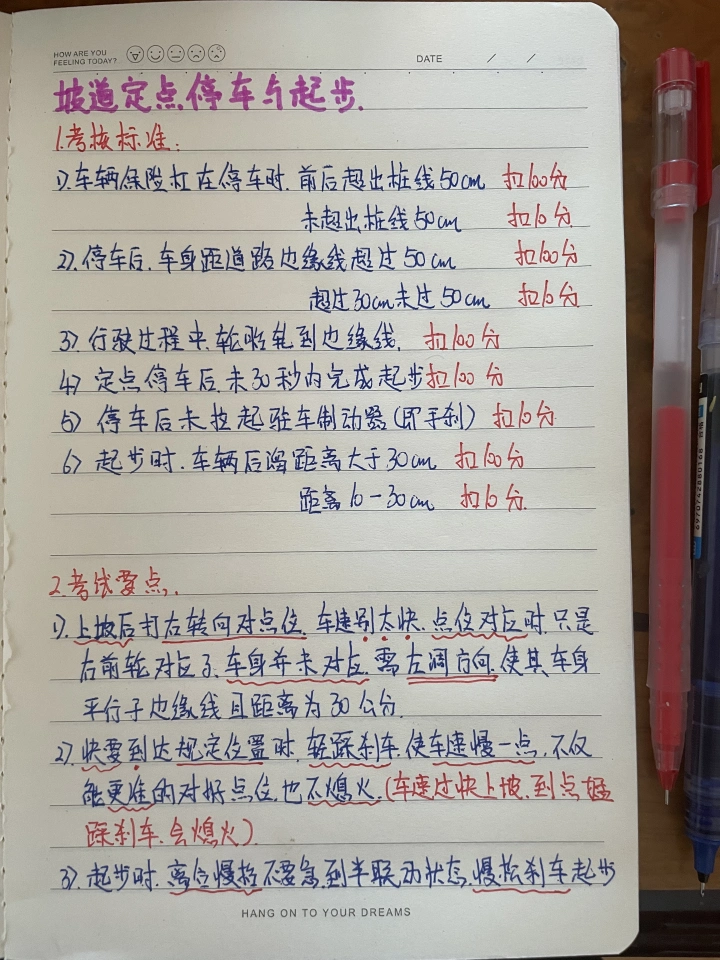 HOW ARE YOU
FEELING TODAY?
DATE / /
坡道定点停车与起步.
1.考核标准:
1).车辆保险杠在停车时.前后超出桩线50cm 扣100分
未超出桩线50cm 扣10分.
2).停车后.车身距道路边缘线超过50cm 扣100分
超过30cm未过50cm 扣10分.
3)行驶过程中.轮胎轧到边缘线. 扣100分
4)定点停车后.未30秒内完成起步扣100分
5)停车后未拉起驻车制动器(即手刹) 扣10分.
6)起步时.车辆后溜距离大于30cm 扣100分
距离10-30cm 扣10分.
2.考试要点.
1).上坡后打右转向对点位.车速别太快.点位对反时.只是
右前轮对反了.车身并未对反.需左调方向.使其车身
平行于边缘线且距离为30公分.
2).快要到达规定位置时.轻踩刹车.使车速慢一点.不仅
能更准的对好点位.也不熄火.(车速过快上坡.到点猛
踩刹车.会熄火).
3).起步时.离合慢抬不要急.到半联动状态.慢松刹车起步
HANG ON TO YOUR DREAMS